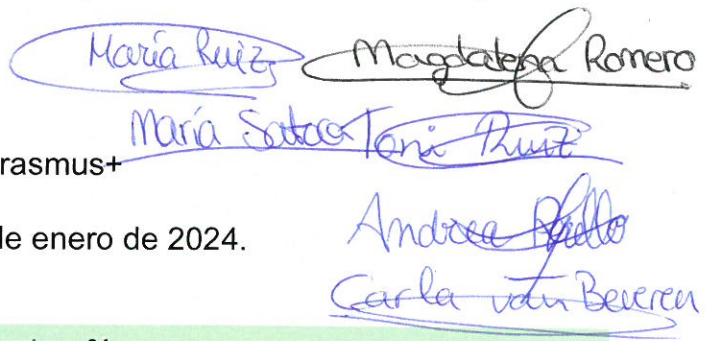 María Ruiz Magdalena Romero
María Toni Ruiz
rasmus+
Andrea
le enero de 2024.
Carla van Beveren